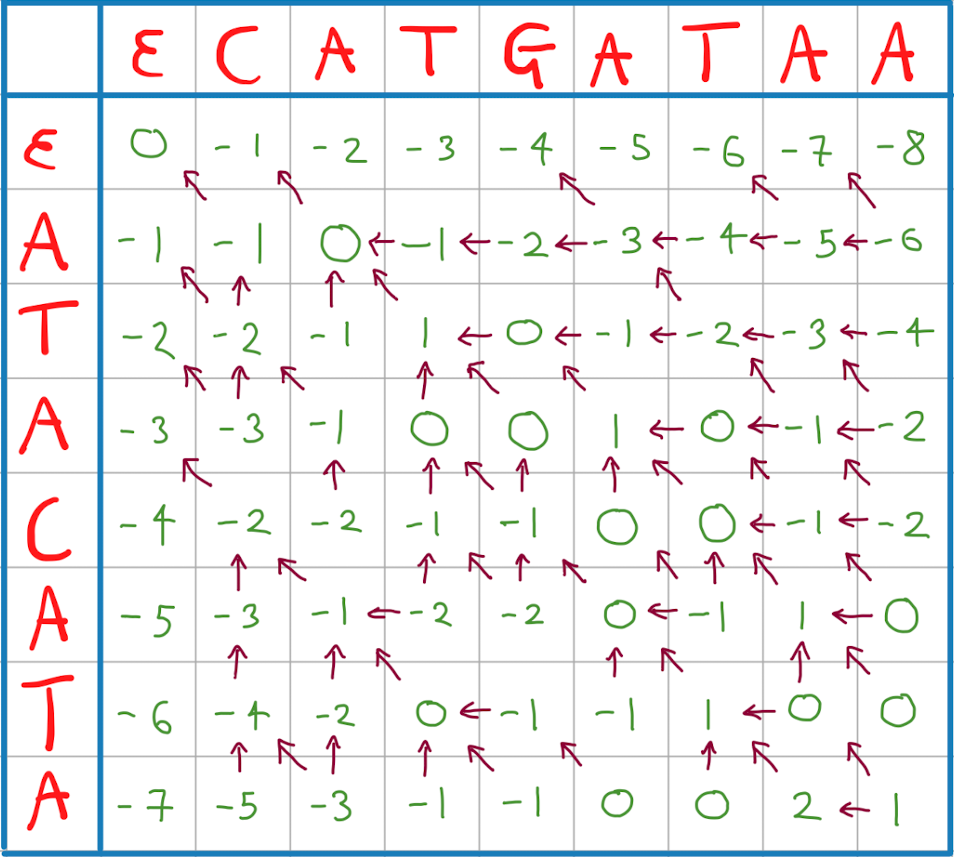 ε C A T G A T A A
ε 0 -1 -2 -3 -4 -5 -6 -7 -8
A -1 -1 0 -1 -2 -3 -4 -5 -6
T -2 -2 -1 1 0 -1 -2 -3 -4
A -3 -3 -1 0 0 1 0 -1 -2
C -4 -2 -2 -1 -1 0 0 -1 -2
A -5 -3 -1 -2 -2 0 -1 1 0
T -6 -4 -2 0 -1 -1 1 0 0
A -7 -5 -3 -1 -1 0 0 2 1